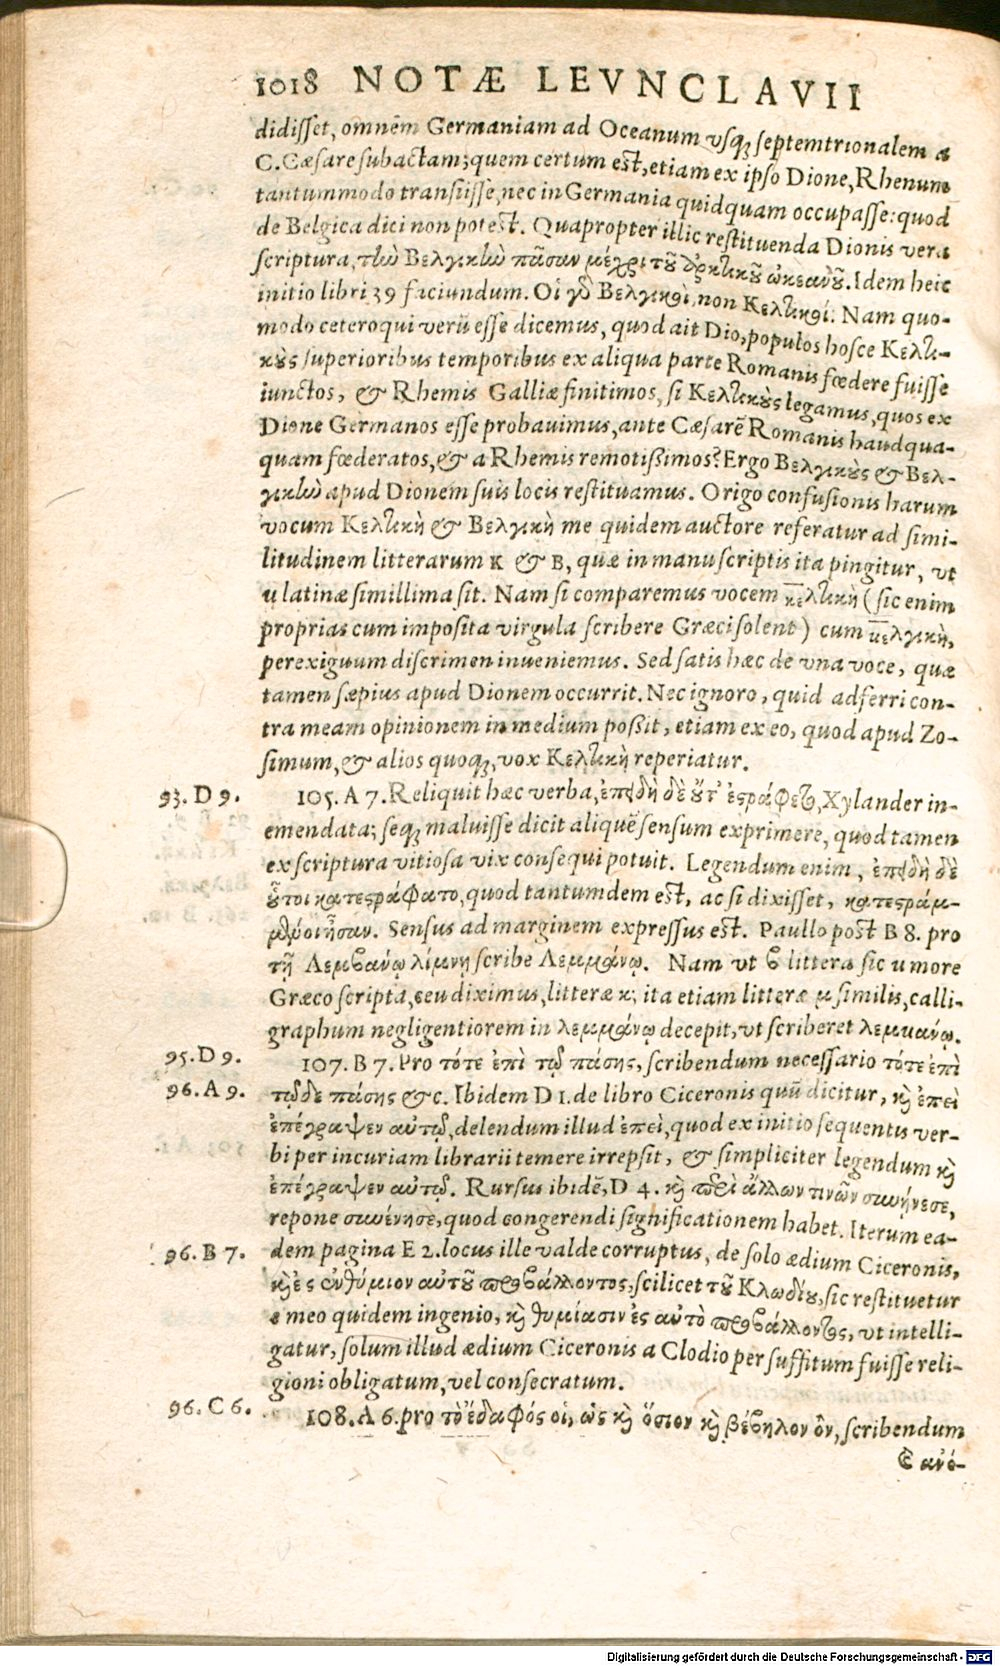 1018 NOTÆ LEVNCLAVII
didisset, omnem Germaniam ad Oceanum vsq; septemtrionalem a
C. Cæsare subactam; quem certum est, etiam ex ipso Dione, Rhenum
tantummodo transiisse, nec in Germania quidquam occupasse: quod
de Belgica dici non potest. Quapropter illic restituenda Dionis vera
scriptura, τὴν Βελγικὴν πᾶσαν μέχρι τοῦ ἀρκτικοῦ ὠκεανοῦ. Idem heic
initio libri 39 faciundum. Οἱ γὸ Βελγικοὶ, non Κελτικοί. Nam quo-
modo ceteroqui verū esse dicemus, quod ait Dio, populos hosce Κελτι-
κοὺς superioribus temporibus ex aliqua parte Romanis fœdere fuisse
iunctos, & Rhemis Galliæ finitimos, si Κελτικοὺς legamus, quos ex
Dione Germanos esse probauimus, ante Cæsarē Romanis haudqua-
quam fœderatos, & a Rhemis remotissimos? Ergo Βελγικοὺς & Βελ-
γικὴν apud Dionem suis locis restituamus. Origo confusionis harum
vocum Κελτικὴ & Βελγικὴ me quidem auctore referatur ad simi-
litudinem litterarum κ & β, quæ in manuscriptis ita pingitur, vt
u latinæ simillima sit. Nam si comparemus vocem κελτικὴ (sic enim
proprias cum imposita virgula scribere Græci solent) cum uελγικὴ,
perexiguum discrimen inueniemus. Sed satis hæc de vna voce, quæ
tamen sæpius apud Dionem occurrit. Nec ignoro, quid adferri con-
tra meam opinionem in medium possit, etiam ex eo, quod apud Zo-
simum, & alios quoq;, vox Κελτικὴ reperiatur.
93. D 9. 105. A 7. Reliquit hæc verba, ἐπειδὴ δὲ οὔτ' ἐστράφεται, Xylander in-
emendata; seq; maluisse dicit aliquē sensum exprimere, quod tamen
ex scriptura vitiosa vix consequi potuit. Legendum enim, ἐπειδὴ δὲ
οὗτοι κατεστράφατο, quod tantumdem est, ac si dixisset, κατεστραμ-
μένοι ἦσαν. Sensus ad marginem expressus est. Paullo post B 8. pro
τῇ Λεμβανῳ λίμνῃ scribe Λεμμάνῳ. Nam vt β littera sic u more
Græco scripta, ceu diximus, litteræ κ; ita etiam litteræ μ similis, calli-
graphum negligentiorem in λεμμάνῳ decepit, vt scriberet λεμuάνῳ.
95. D 9. 107. B 7. Pro τότε ἐπὶ τῷ πάσης, scribendum necessario τότε ἐπὶ
96. A 9. τῷδε πάσης &c. Ibidem D 1. de libro Ciceronis quū dicitur, καὶ ἐπεὶ
ἐπέγραψεν αὐτῷ, delendum illud ἐπεὶ, quod ex initio sequentis ver-
bi per incuriam librarii temere irrepsit, & simpliciter legendum καὶ
ἐπέγραψεν αὐτῷ. Rursus ibidē, D 4. καὶ περὶ ἄλλων τινῶν συνῄνεσε,
repone συνένησε, quod congerendi significationem habet. Iterum ea-
96. B 7. dem pagina E 2. locus ille valde corruptus, de solo ædium Ciceronis,
καὶ ἐς ἐνθύμιον αὐτοῦ προσβάλλοντος, scilicet τοῦ Κλωδίου, sic restituetur
e meo quidem ingenio, καὶ θυμίασιν ἐς αὐτὸ προσβάλλοντος, vt intelli-
gatur, solum illud ædium Ciceronis a Clodio per suffitum fuisse reli-
gioni obligatum, vel consecratum.
96. C 6. 108. A 6. pro τὸ ἔδαφός οἱ, ὡς καὶ ὅσιον καὶ βέβηλον ὂν, scribendum
ἀνό-